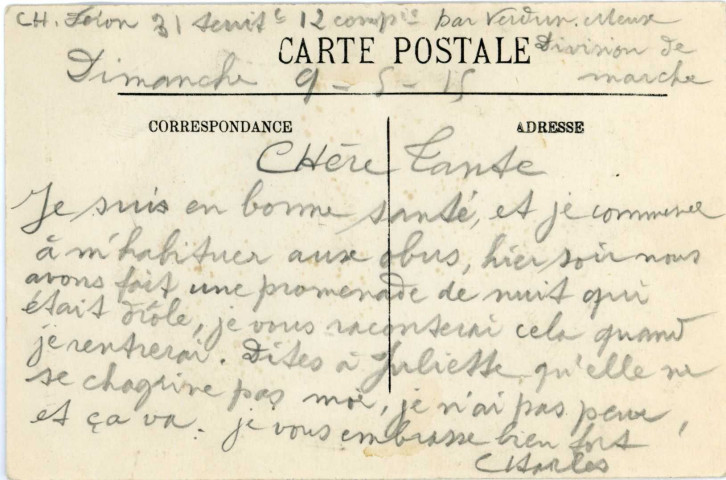 CH. 31 12 comp<sup>ie</sup> par Verdun. Meuse
CARTE POSTALE
Division de
marche
Dimanche 9 - 5 - 15
CORRESPONDANCE
ADRESSE
CHère Tante
Je suis en bonne santé, et je commence
à m'habituer aux obus, hier soir nous
avons fait une promenade de nuit qui
était drôle, je vous raconterai cela quand
je rentrerai. Dites à Juliette qu'elle ne
se chagrine pas moi, je n'ai pas peur,
et ça va. je vous embrasse bien fort
CHarles